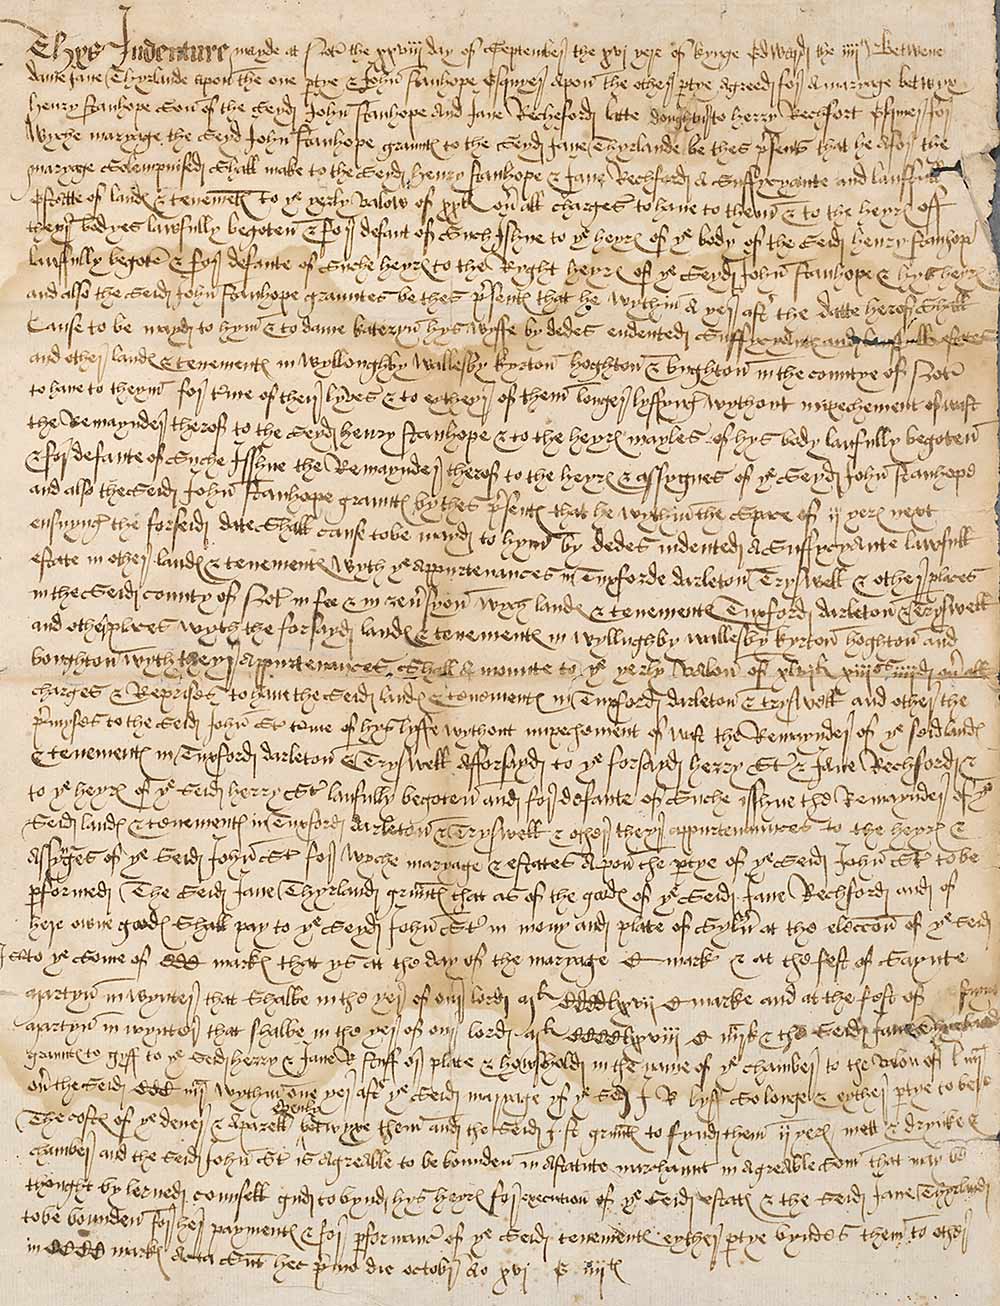 Thys Indenture mayde at Not the xxviij day of September the xvj yere of kynge Edward the iiij Betwene
dame Jane Thyrlande apon the one ptye & John Stanhope Esquyer apon the other ptye Agreed for A marriage betwyx
henry Stanhope Son of the Seyd John Stanhope And Jane Recheford late doughter to herry Rechfort Esquier for
Wyche maryage the Seyd John Stanhope grauntes to the Seyd Jane Thyrlande be thes psents that he Afor the
maryage Solempnised Shall make to the Seid henry Stanhope & Jane Rechford A Suffycyante and laufull
Estatte of landes & tenementes to ye yerly valow of xx li ou all charges to haue to them & to the heyres off
theyr bodyes lawfully begoten & for defaut of Such Isshue to ye heyres of ye body of the Seid henry Stanhop
laufully begote & for defaute of Suche heyres to the Ryght heyres of ye Seyd John Stanhope & hys heyres
and also the Seid John Stanhope grauntes be thes psentes that he wythin A yer aft the datte herof Shall
Cause to be mayd to hym & to dame kateryn hys wyffe by dedes endented Suffycyaunte and laufull estates
and other landes & tenementes in Wylloughby Wallesby kyrton hoghton & bughton in the countye of Not
to haue to theym for tme of ther lyves & to eythers of them longer lyffyng wythout inpechement of wast
the Remaynder therof to the Seyd henry Stanhope & to the heyres mayles of hys body laufully begoten
& for defaute of Suche Isshue the Remaynder therof to the heyres & assygnes of ye Seyd John Stanhope
and also the Seid John Stanhope grauntes by thes psentes that he wythin the Space of ij yeres next
ensuyng the forseid date Shall cause to be mayd to hym by dedes indented A Suffycyante lawfull
estate in other landes & tenementes wyth ye appurtenances in Tuxforde darleton Tryswell & other places
in the Seid county of Not in fee & in wych landes & tenementes Tuxford darleton & Tryswell
and other places wyth the forsayd landes & tenementes in Wyllughby Wallesby kyrton hoghton and
boughton wyth theyr Appurtenances Shall A mounte to ye yerly valow of xiij s iiij d ou all
charges & Reprises to haue the Seid landes & tenementes in Tuxford darleton & tryswell and other the
pmyses to the Seid John St tme of hys lyffe wythout inpechement of wast the Remaynder of ye seid landes
& tenementes in Tuxford darleton & Tryswell Afforsayd to ye forsayd herry St & Jane Rechford &
to ye heyres of ye Seid herry St laufully begoten and for defaute of Suche isshue the Remaynder of ye
Seid landes & tenementes in Tuxford darleton & Tryswell & other theyr appurtenaunces to the heyres &
Assygnes of ye Seid John St for wyche maryage & estates Apon the ptye of ye Seid John St to be
pformed The Seid Jane Thyrland grauntes that as of the goodes of ye Seid Jane Rechford and of
here owne goodes Shall pay to ye Seyd John St in mony and plate of Sylu at the eleccon of ye Seid
John St to ye Some of CCCC markes that ys at the day of the maryage C markes & at the fest of Saynte
martyn in wynter that Shalbe in the yer of our lord lxvij C marke and at the fest of Saynte
martyn in wynter that shalbe in the yer of our lord lxviij C markes & the Seid Jane Thyrland
grauntes to gyff to ye Seid herry & Jane R Stuff or plate & howshold in the name of ye chamber to the valow of
ou the Seid CCC wythin one yer aft ye Seid maryage yf ye Seid J R lyff So longe & eyther ptye to bere
The costes of ye dener & Aparell evenly betwyxe them and the Seid J St grauntes to fynd them ij yeres mett & drynke &
chamber and the Seid John St is agreable to be bownden in A statute marchaunt in agreable Som that may be
thought by lerned counsell and to bynd hys heyres for execution of ye Seid estates & the Seid Jane Thyrland
to be bounden for her paymentes & for pformance of ye Seid tenementes eyther ptye byndes them to other
in CCCC markes data Sunt hec pimo die octobr Ao xvj E iiij